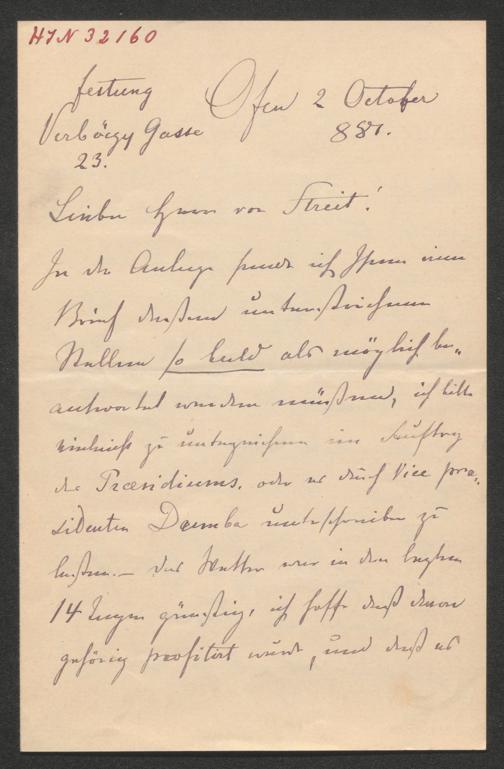 HIN 32160
Festung
Ofen 2 October
Verböczy Gasse
881.
23.
Lieber Herr von Streit!
In der Anlage sende ich Ihnen einen
Brief dessen unterstrichene
Stellen so bald als möglich be„
antwortet werden müssen, ich bitte
entweder zu unterzeichnen im Auftrag
des Præsidiums, oder es durch Vice præ„
sidenten Dumba unterschreiben zu
lassen. – Das Wetter war in den letzten
14 Tagen günstig, ich hoffe daß davon
gehörig profitirt wurde, und daß es